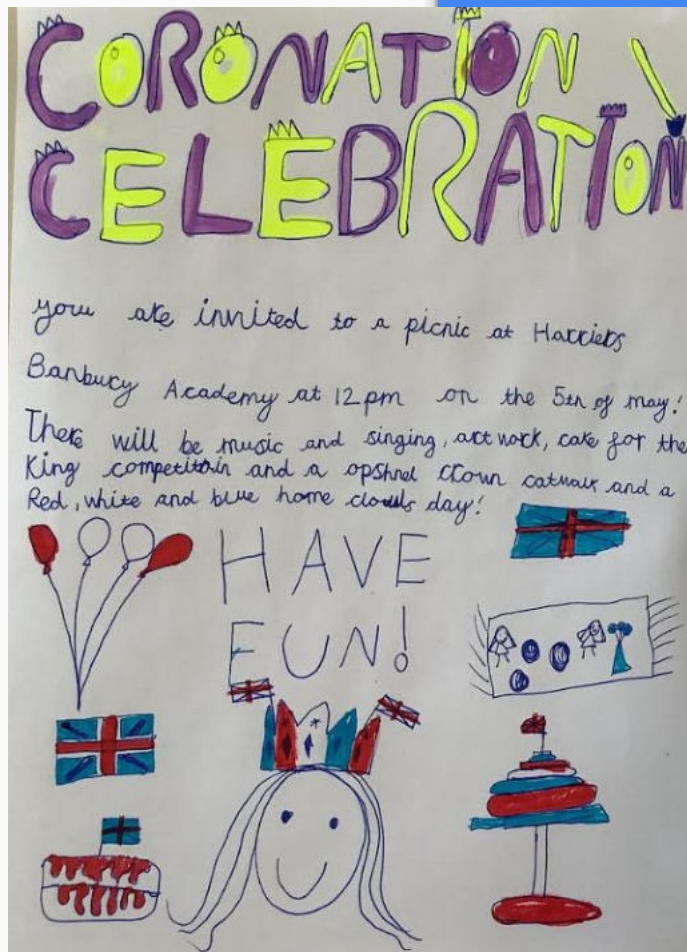 CORONATION
CELEBRATION
you are invited to a picnic at Harriers
Banbury Academy at 12pm on the 5th of may!
There will be music and singing, art work, cake for the
King competitoin and a opshnel crown catwalk and a
Red, white and blue home clowls day!
HAVE
FUN!